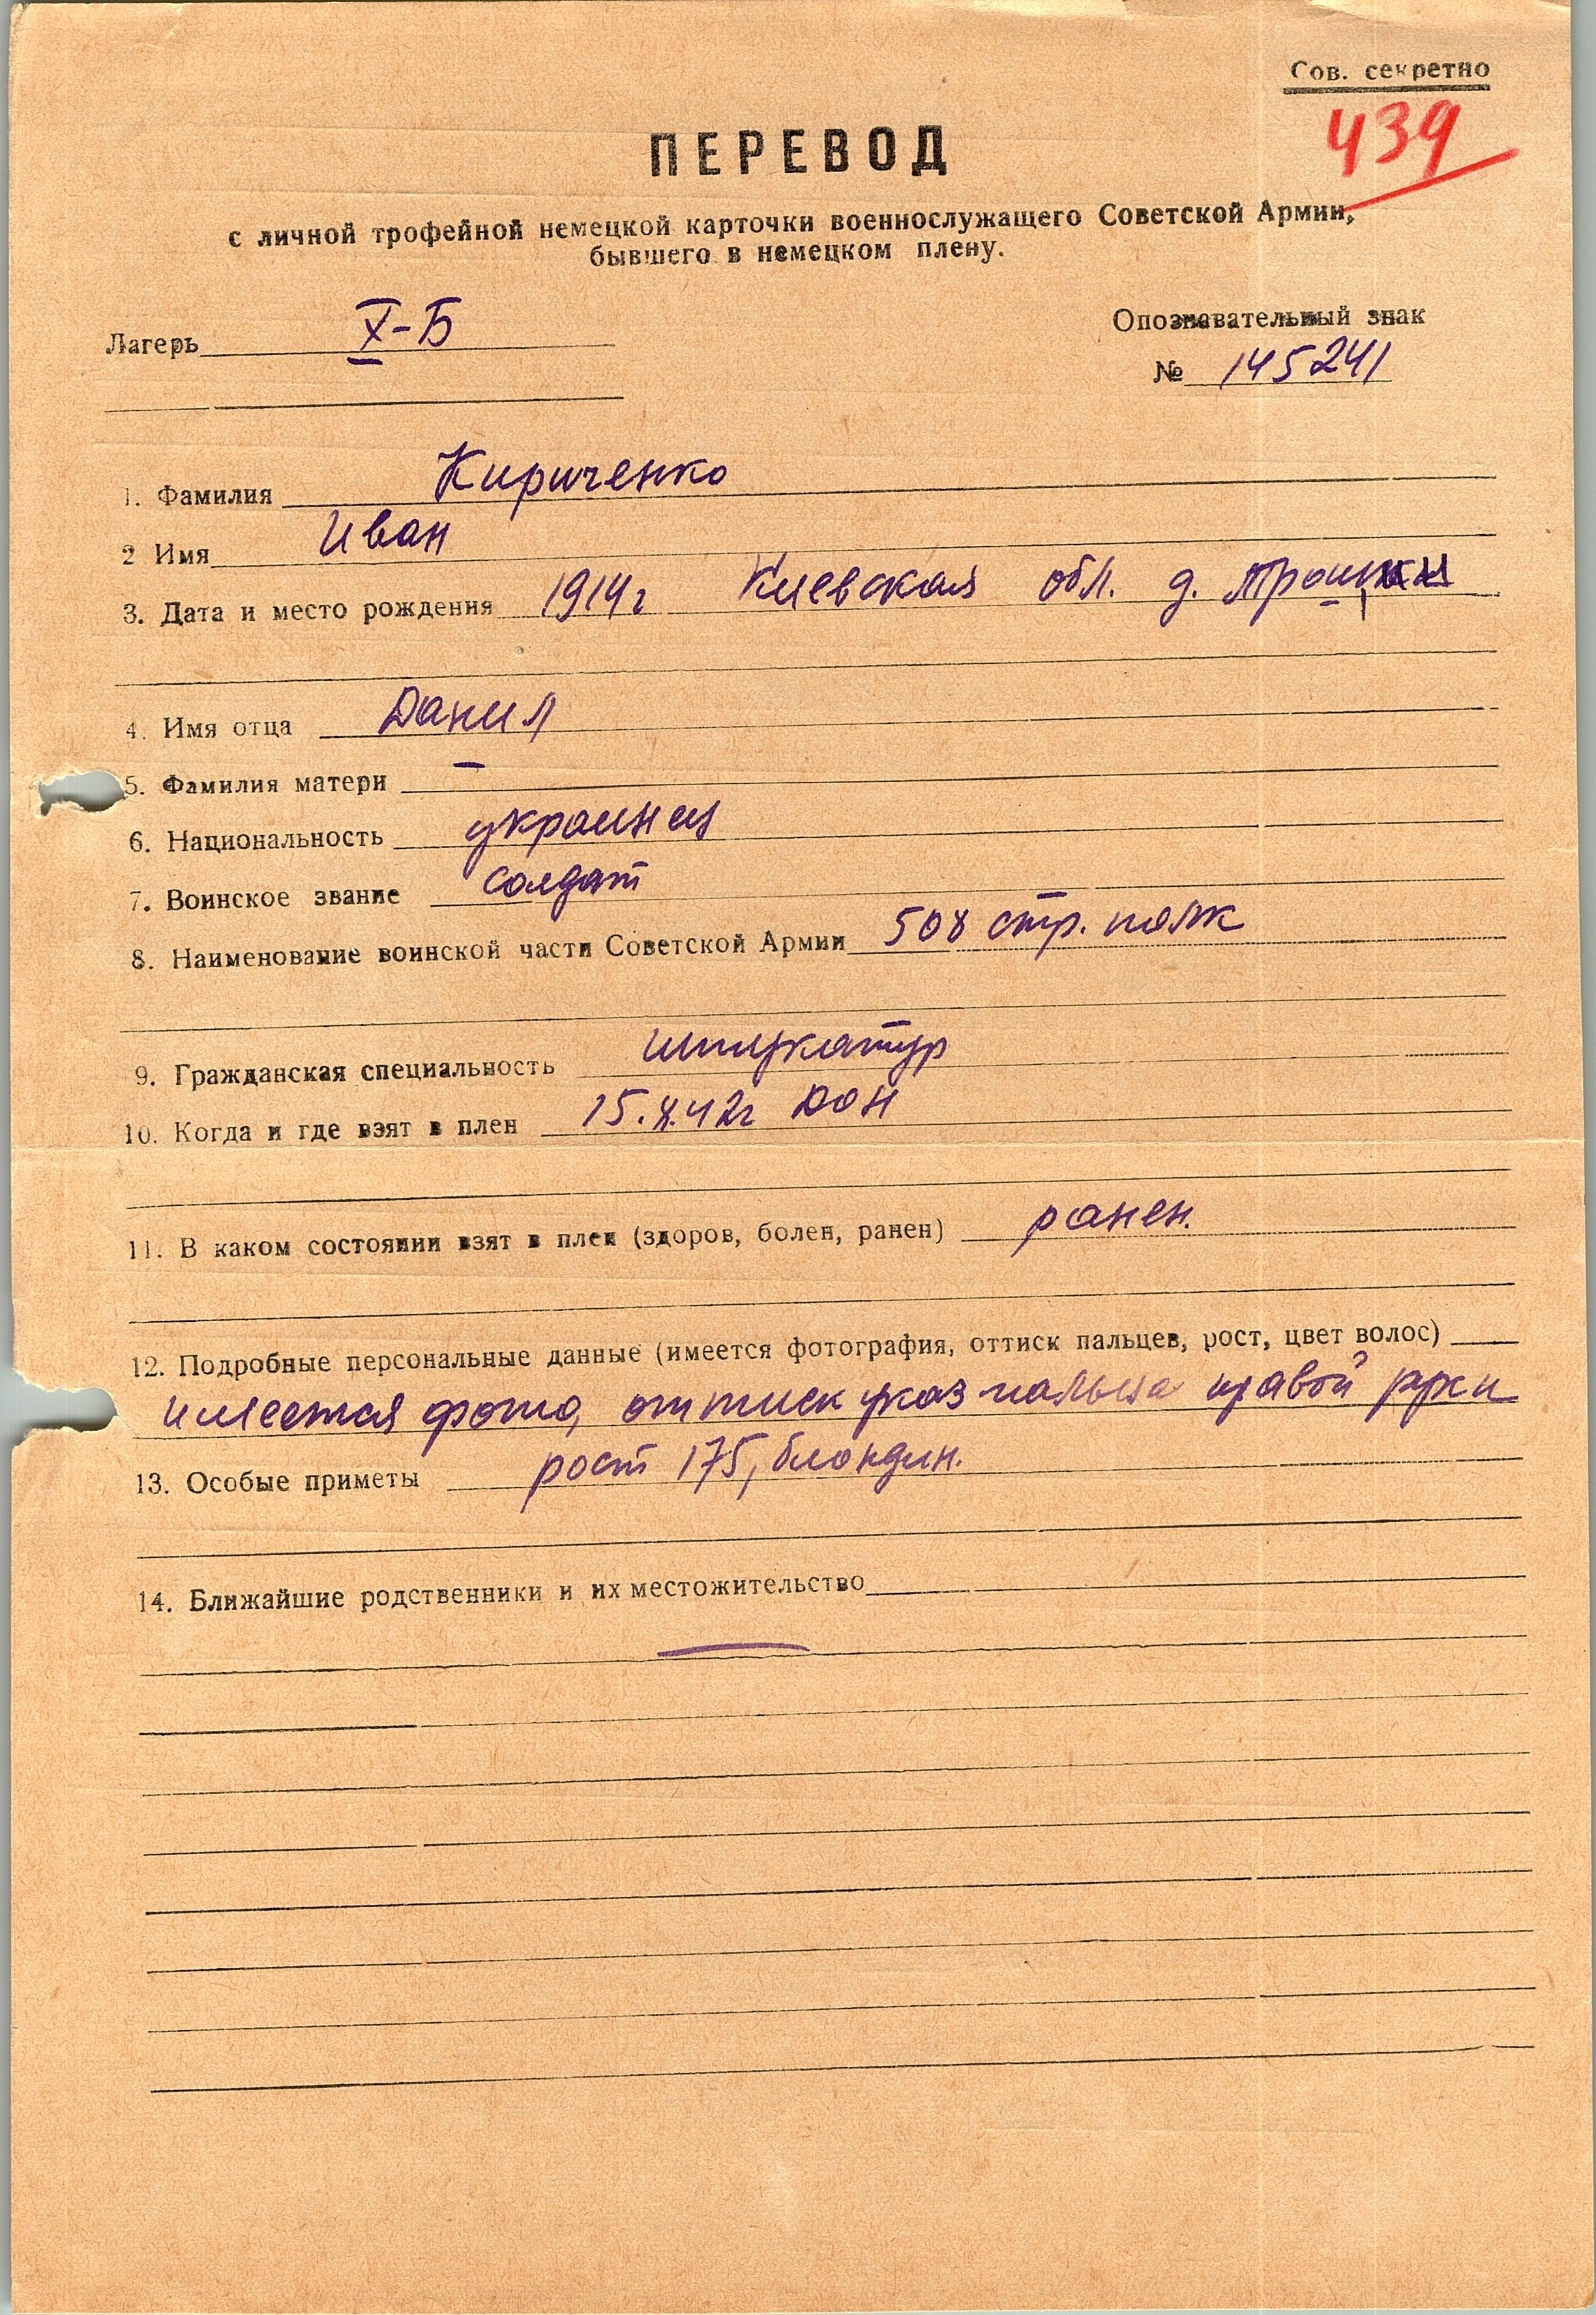 Сов. секретно
439
ПЕРЕВОД
с личной трофейной немецкой карточки военнослужащего Советской Армии,
бывшего в немецком плену.
Лагерь X-Б
Опознавательный знак
№ 145241
1. Фамилия Кириченко
2 Имя Иван
3. Дата и место рождения 1914г Киевская обл. д.
4. Имя отца Данил
5. Фамилия матери –
6. Национальность украинец
7. Воинское звание солдат
8. Наименование воинской части Советской Армии 508 стр. полк
9. Гражданская специальность штукатур
10. Когда и где взят в плен 15.8.42г Дон
11. В каком состоянии взят в плен (здоров, болен, ранен) ранен.
12. Подробные персональные данные (имеется фотография, оттиск пальцев, рост, цвет волос)
имеется фото, оттиск указ пальца правой руки
13. Особые приметы рост 175, блондин.
14. Ближайшие родственники и их местожительство
—